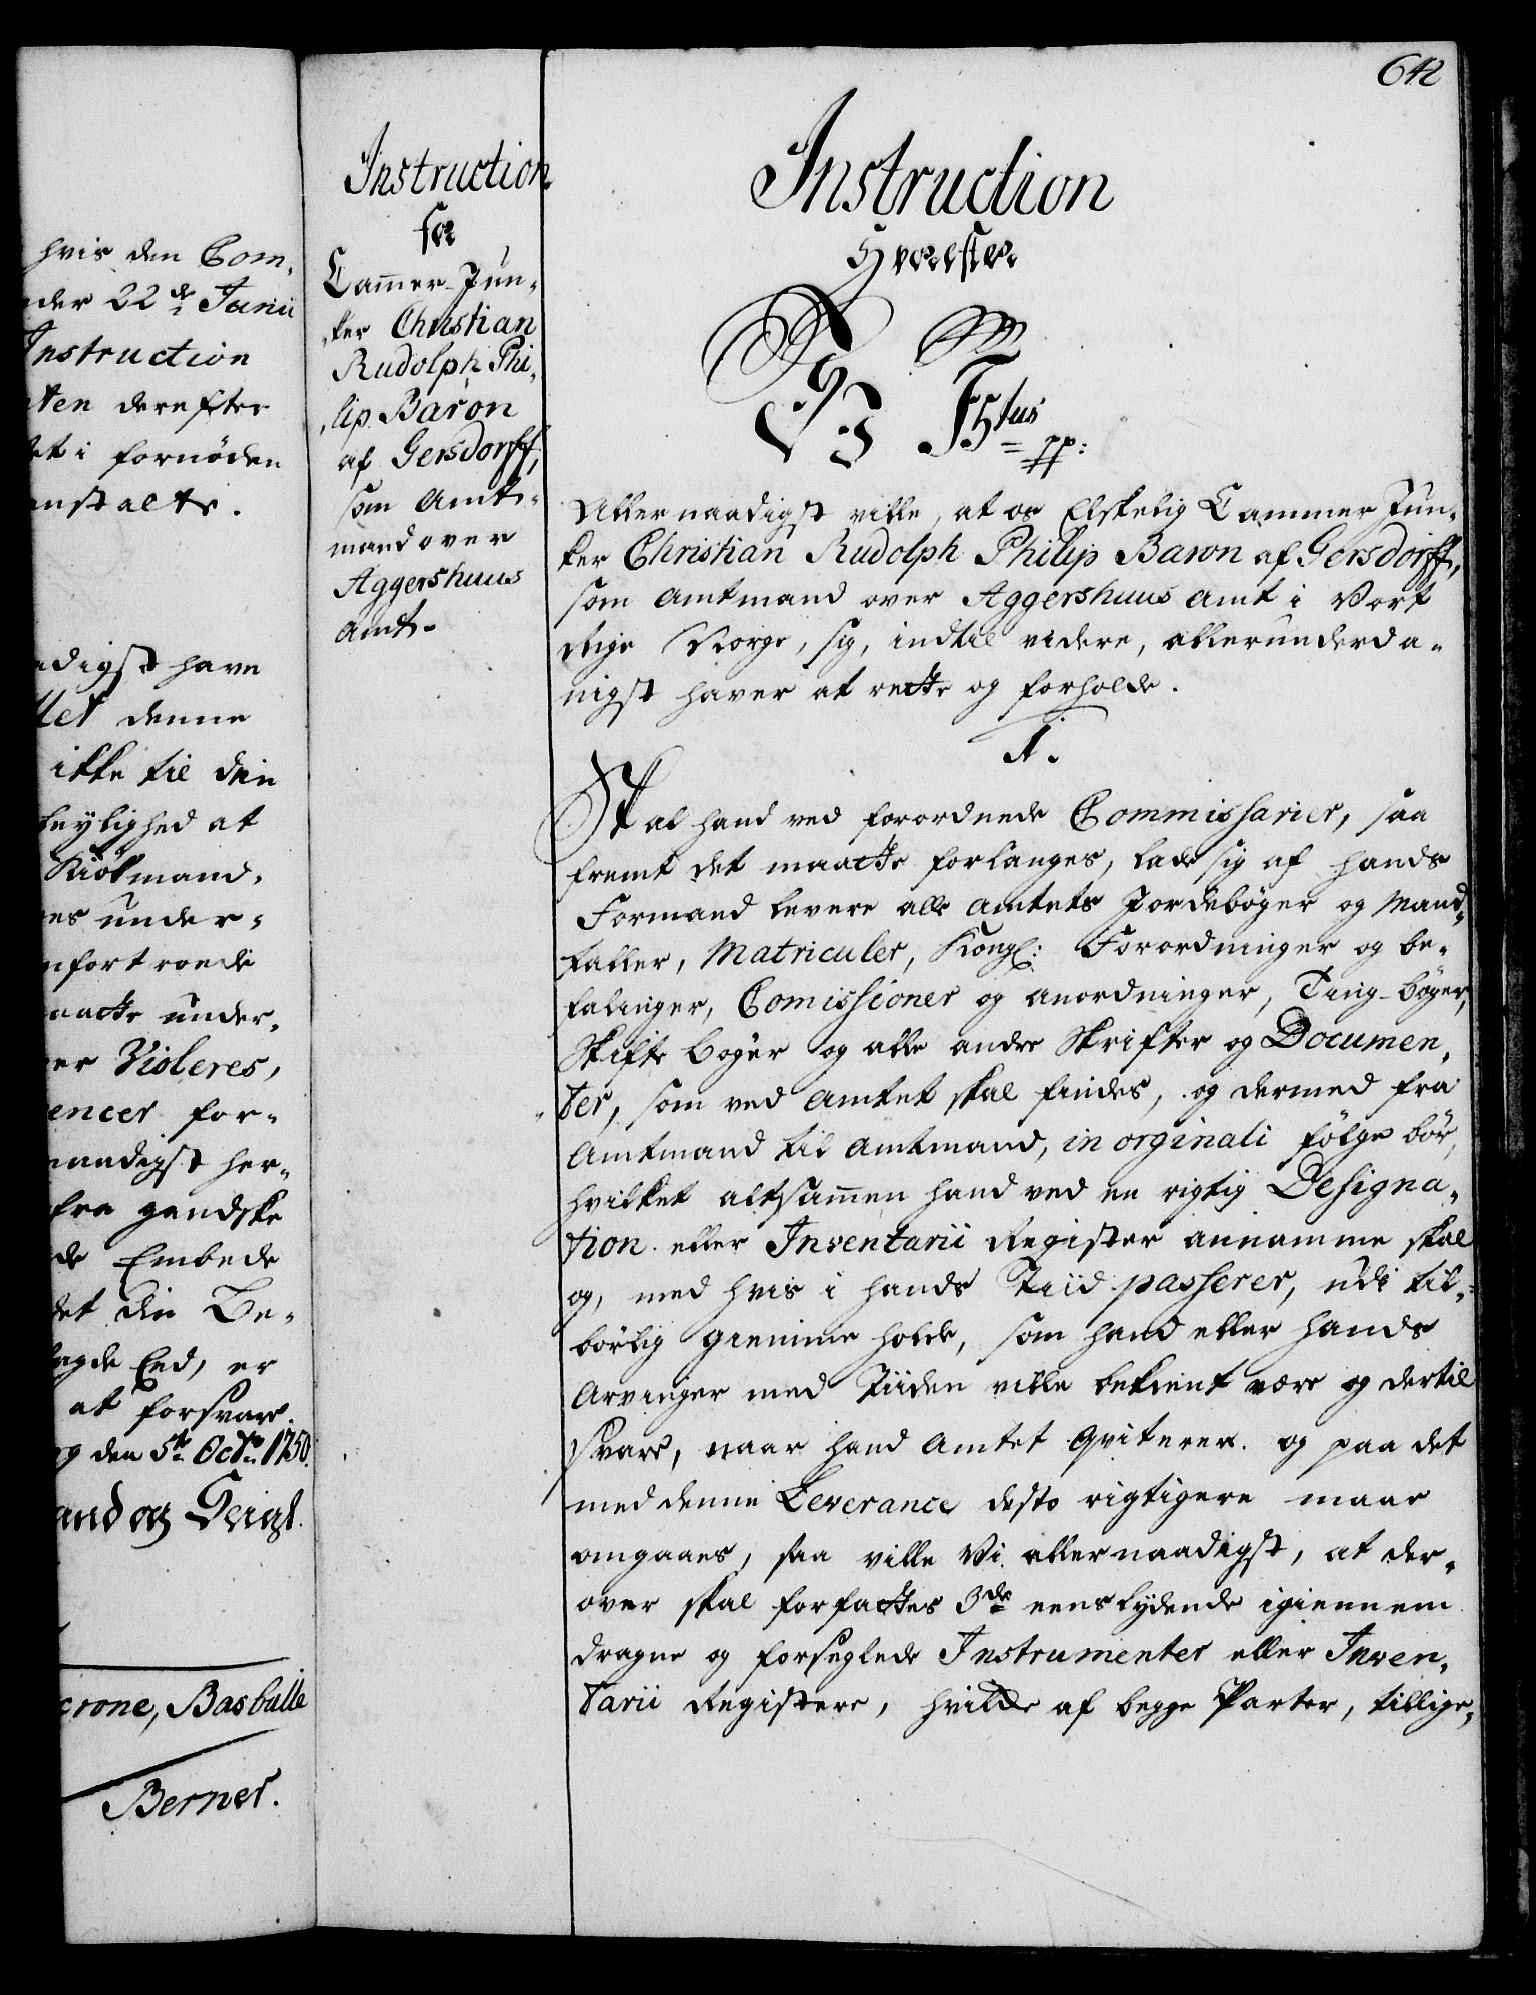 642
hvis den Com-
nder 22de Junii
Instruction
ten derefter
det i fornöden
anstalte.
adigst have
tet denne
ikke til din
leylighed at
Kiöbmand,
es under-
nfort roede
aatte under-
er Violeres,
encer for-
naadigst her-
fra gandske
de Embede
det din Be-
lagde Eed, er
at forsvare.
g den 5te Octbr 1750.
and og Seigl.
crone, Basballe
Berner.
Instruction
for
Cammer-Jun-
ker Christian
Rudolph Phi-
lip Baron
af Gersdorff,
som Amt-
mand over
Aggershuus
Amt.
Instruction
Hvorefter
Vi F5tus
pp:
Allernaadigst ville, at os Elskelig Cammer Jun-
ker Christian Rudolph Philip Baron af Gersdorff,
som Amtmand over Aggershuus Amt i Vort
Rige Norge, sig, indtil videre, allerunderda-
nigst haver at rette og forholde.
1.
Skal hand ved forordnede Commissarier, saa
fremt det maatte forlanges, lade sig af hands
Formand levere alle Amtets Jordebøger og Mand-
taller, Matriculer, Kongl: Forordninger og be-
falinger, Comissioner og anordninger, Ting-bøger,
Skifte bøger og alle andre Skrifter og Documen-
ter, som ved Amtet skal findes, og dermed fra
Amtmand til Amtmand, in orginali følge bør,
hvilket altsammen hand ved en rigtig Designa-
tion eller Inventarii Register annamme skal
og, med hvis i hands Tiid passerer, udi til-
børlig giemme holde, som hand eller hands
Arvinger med Tiiden ville bekient være og dertil
svare, naar hand Amtet qviterer. og paa det
med denne Leverance desto rigtigere maae
omgaaes, saa ville Vi allernaadigst, at der-
over skal forfattes 3de eenslydende igiennem
dragne og forseglede Instrumenter eller Inven-
tarii Registere, hvilke af begge Parter, tillige-